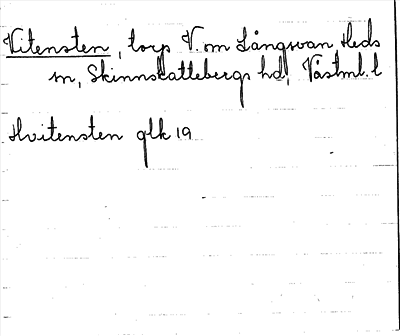 Vitensten, torp V. om Långsvan, Heds
sn, Skinnskattebergs hd, Västml. l
Hvitensten glk 19